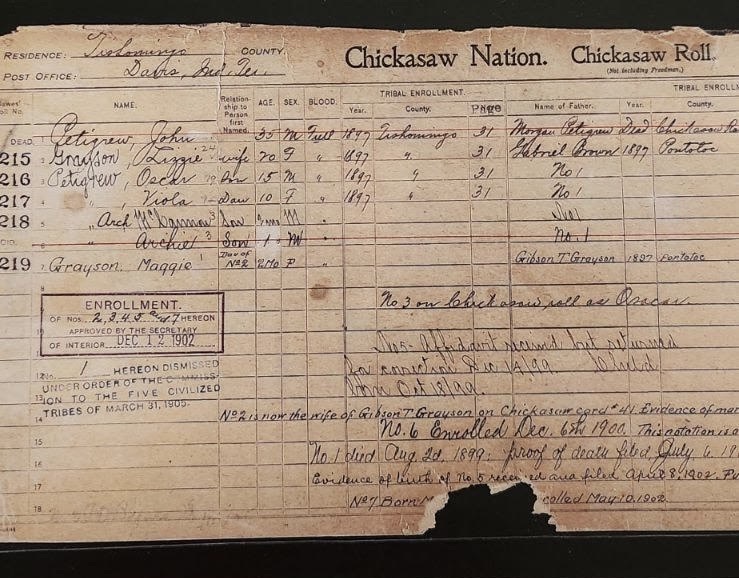 RESIDENCE: Tishomingo COUNTY. Chickasaw Nation. Chickasaw Roll.
POST OFFICE: Davis, Ind. Ter. (Not Including Freedmen.)
Dawes' Roll No. NAME. Relationship to Person first Named. AGE. SEX. BLOOD. TRIBAL ENROLLMENT. TRIBAL ENROLLM
Year. County. Page Name of Father. Year. County.
DEAD. 1 Petigrew, John 35 M Full 1897 Tishomingo 31 Morgan Petigrew Dead Chickasaw
215 2 Grayson, Lizzie 24 wife 20 F " 1897 " 31 Gabriel Brown 1897 Pontotoc
216 3 Petigrew, Oscar Son 15 M " 1897 " 31 No 1
217 4 " , Viola Dau 10 F " 1897 " 31 No 1
218 5 " Arch 3 Son M No1
6 " Archie 3 Son 1 M " No. 1
219 7 Grayson, Maggie 1 Dau of No2 2Mo F Gibson T. Grayson 1897 Pontotoc
No 3 on Chickasaw roll as
ENROLLMENT.
OF NOS. 2,3,4,5 and 7 HEREON
APPROVED BY THE SECRETARY
OF INTERIOR DEC 12 1902
No 5 - Affidavit received but returned
for correction Dec
Oct 18/99.
12 No. 1 HEREON DISMISSED
UNDER ORDER OF THE COMMISSION
TO THE FIVE CIVILIZED
TRIBES OF MARCH 31, 1905.
14 No2 is now the wife of Gibson T. Grayson on Chickasaw card #41. Evidence of mar
15 No. 6 Enrolled Dec. 6th 1900. This notation is a
16 No. 1 died Aug 2d, 1899: proof of death filed July 6, 19
17 Evidence of birth of No. 5 received and filed April 8, 1902.
18 No7 Born M rolled May 10, 1902